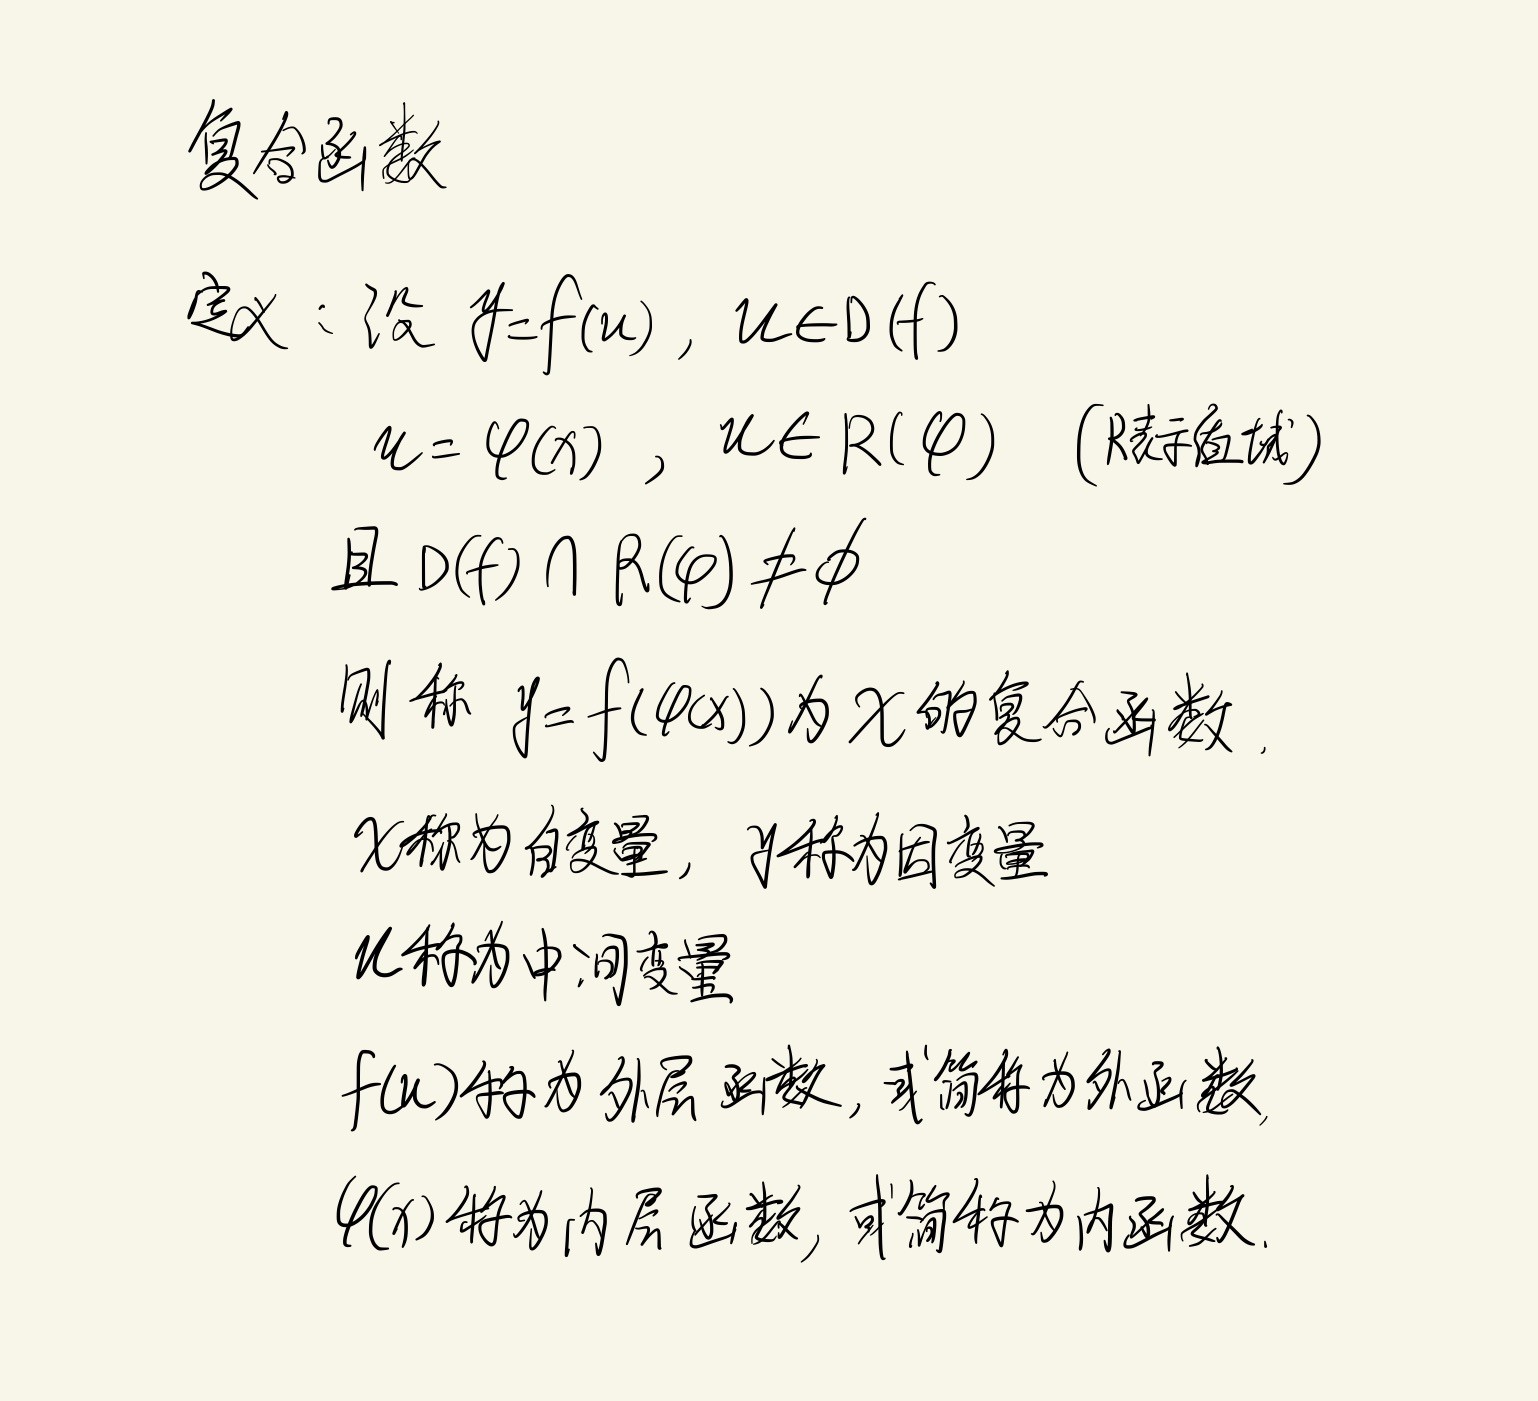 复合函数
定义：设 y=f(u)，u∈D(f)
u=φ(x)，u∈R(φ) (R表示值域)
且 D(f)∩R(φ)≠ϕ
则称 y=f(φ(x))为x的复合函数.
x称为自变量，y称为因变量
u称为中间变量
f(u)称为外层函数，或简称为外函数，
φ(x)称为内层函数，或简称为内函数.